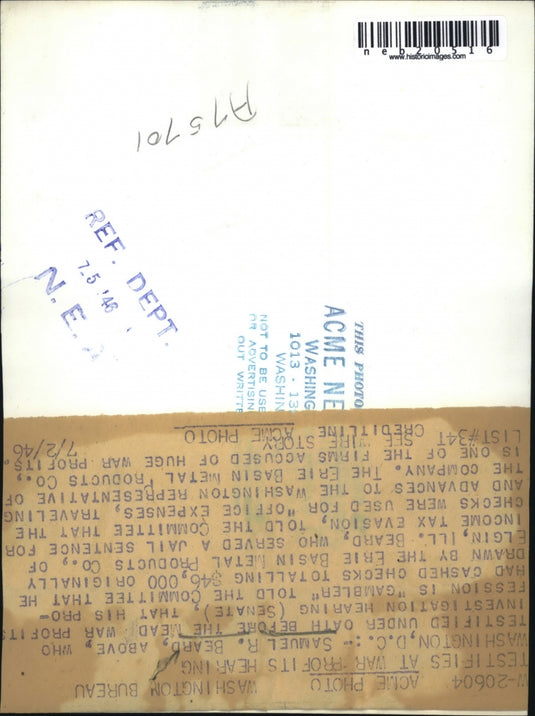 neb20516
www.historicimages.com
A75701
REF. DEPT.
7.5 '46
N. E. A
THIS PHOTO
ACME NE
WASHING
1013 - 13
WASHIN
NOT TO BE USE
OR ADVERTISIN
OUT WRITTE
W-20604 ACME PHOTO WASHINGTON BUREAU
TESTIFIES AT WAR PROFITS HEARING
WASHINGTON, D.C.:-- SAMUEL R. BEARD, ABOVE, WHO
TESTIFIED UNDER OATH BEFORE THE MEAD WAR PROFITS
INVESTIGATION HEARING (SENATE), THAT HIS PRO-
FESSION IS "GAMBLER" TOLD THE COMMITTEE THAT HE
HAD CASHED CHECKS TOTALLING $46,000 ORIGINALLY
DRAWN BY THE ERIE BASIN METAL PRODUCTS CO., OF
ELGIN, ILL. BEARD, WHO SERVED A JAIL SENTENCE FOR
INCOME TAX EVASION, TOLD THE COMMITTEE THAT THE
CHECKS WERE USED FOR "OFFICE EXPENSES, TRAVELING
AND ADVANCES TO THE WASHINGTON REPRESENTATIVE OF
THE COMPANY. THE ERIE BASIN METAL PRODUCTS CO.,
IS ONE OF THE FIRMS ACCUSED OF HUGE WAR PROFITS.
LIST#34T SEE WIRE STORY 7/2/46
CREDITLINE ACME PHOTO